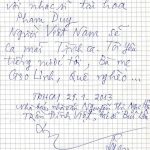 với nhạc sĩ tài hoa
Phạm Duy
Người Việt Nam sẽ
ca mãi Tình ca. Tôi yêu
tiếng nước tôi, Bà mẹ
Gio Linh, Quê nghèo...
TPHCM, 29.1.2013
Nguyễn Thị